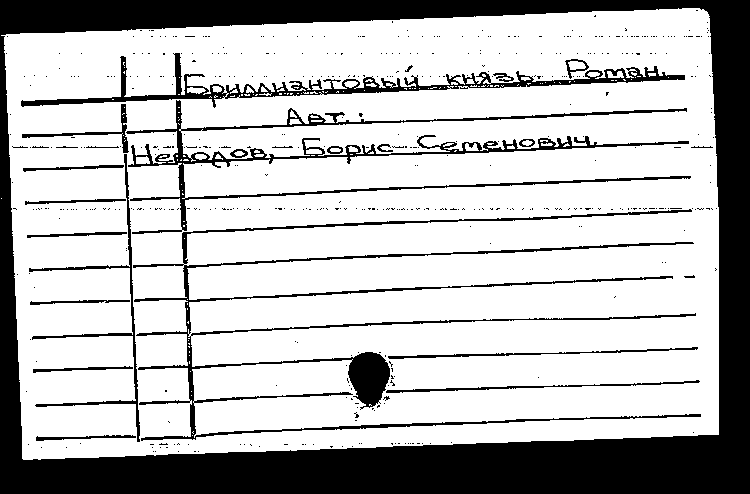 Бриллиантовый князь. Роман.
Авт.:
Неводов, Борис Семенович.